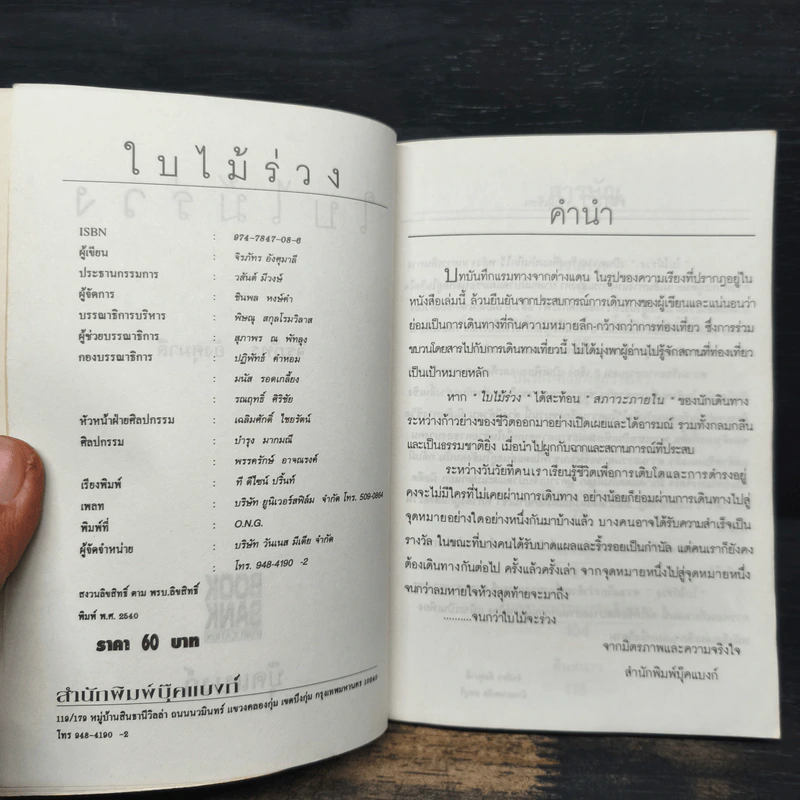 ใบไม้ร่วง
ISBN : 974-7847-08-6
ผู้เขียน : จิรภัทร อังศุมาลี
ประธานกรรมการ : วสันต์ มีวงษ์
ผู้จัดการ : ชินพล หงษ์คำ
บรรณาธิการบริหาร : พิษณุ สกุลโรมวิลาส
ผู้ช่วยบรรณาธิการ : สุภาพร ณ พัทลุง
กองบรรณาธิการ : ปฏิพัทธ์ คำหอม
: มนัส รอดเกลี้ยง
: รณฤทธิ์ ศิริชัย
หัวหน้าฝ่ายศิลปกรรม : เฉลิมศักดิ์ ไชยรัตน์
ศิลปกรรม : บำรุง มากมณี
: พรรครักษ์ อาจณรงค์
เรียงพิมพ์ : ที ดีไซน์ ปริ้นท์
เพลท : บริษัท ยูนิเวอร์สฟิล์ม จำกัด โทร. 509-0864
พิมพ์ที่ : O.N.G.
ผู้จัดจำหน่าย : บริษัท วันเนส มีเดีย จำกัด
: โทร. 948-4190 -2
สงวนลิขสิทธิ์ ตาม พรบ.ลิขสิทธิ์
พิมพ์ พ.ศ. 2540
ราคา 60 บาท
สำนักพิมพ์บุ๊คแบงก์
119/179 หมู่บ้านสินธานีวิลล่า ถนนนวมินทร์ แขวงคลองกุ่ม เขตบึงกุ่ม กรุงเทพมหานคร
โทร 948-4190 -2
คำนำ
บทบันทึกแรมทางจากต่างแดน ในรูปของความเรียงที่ปรากฏอยู่ใน
หนังสือเล่มนี้ ล้วนยืนยันจากประสบการณ์การเดินทางของผู้เขียนและแน่นอนว่า
ย่อมเป็นการเดินทางที่กินความหมายลึก-กว้างกว่าการท่องเที่ยว ซึ่งการร่วม
ขบวนโดยสารไปกับการเดินทางเที่ยวนี้ ไม่ได้มุ่งพาผู้อ่านไปรู้จักสถานที่ท่องเที่ยว
เป็นเป้าหมายหลัก
หาก " ใบไม้ร่วง " ได้สะท้อน " สภาวะภายใน " ของนักเดินทาง
ระหว่างก้าวย่างของชีวิตออกมาอย่างเปิดเผยและได้อารมณ์ รวมทั้งกลมกลืน
และเป็นธรรมชาติยิ่ง เมื่อนำไปผูกกับฉากและสถานการณ์ที่ประสบ
ระหว่างวันวัยที่คนเราเรียนรู้ชีวิตเพื่อการเติบโตและการดำรงอยู่
คงจะไม่มีใครที่ไม่เคยผ่านการเดินทาง อย่างน้อยก็ย่อมผ่านการเดินทางไปสู่
จุดหมายอย่างใดอย่างหนึ่งกันมาบ้างแล้ว บางคนอาจได้รับความสำเร็จเป็น
รางวัล ในขณะที่บางคนได้รับบาดแผลและริ้วรอยเป็นกำนัล แต่คนเราก็ยังคง
ต้องเดินทางกันต่อไป ครั้งแล้วครั้งเล่า จากจุดหมายหนึ่งไปสู่จุดหมายหนึ่ง
จนกว่าลมหายใจห้วงสุดท้ายจะมาถึง
..........จนกว่าใบไม้จะร่วง
จากมิตรภาพและความจริงใจ
สำนักพิมพ์บุ๊คแบงก์